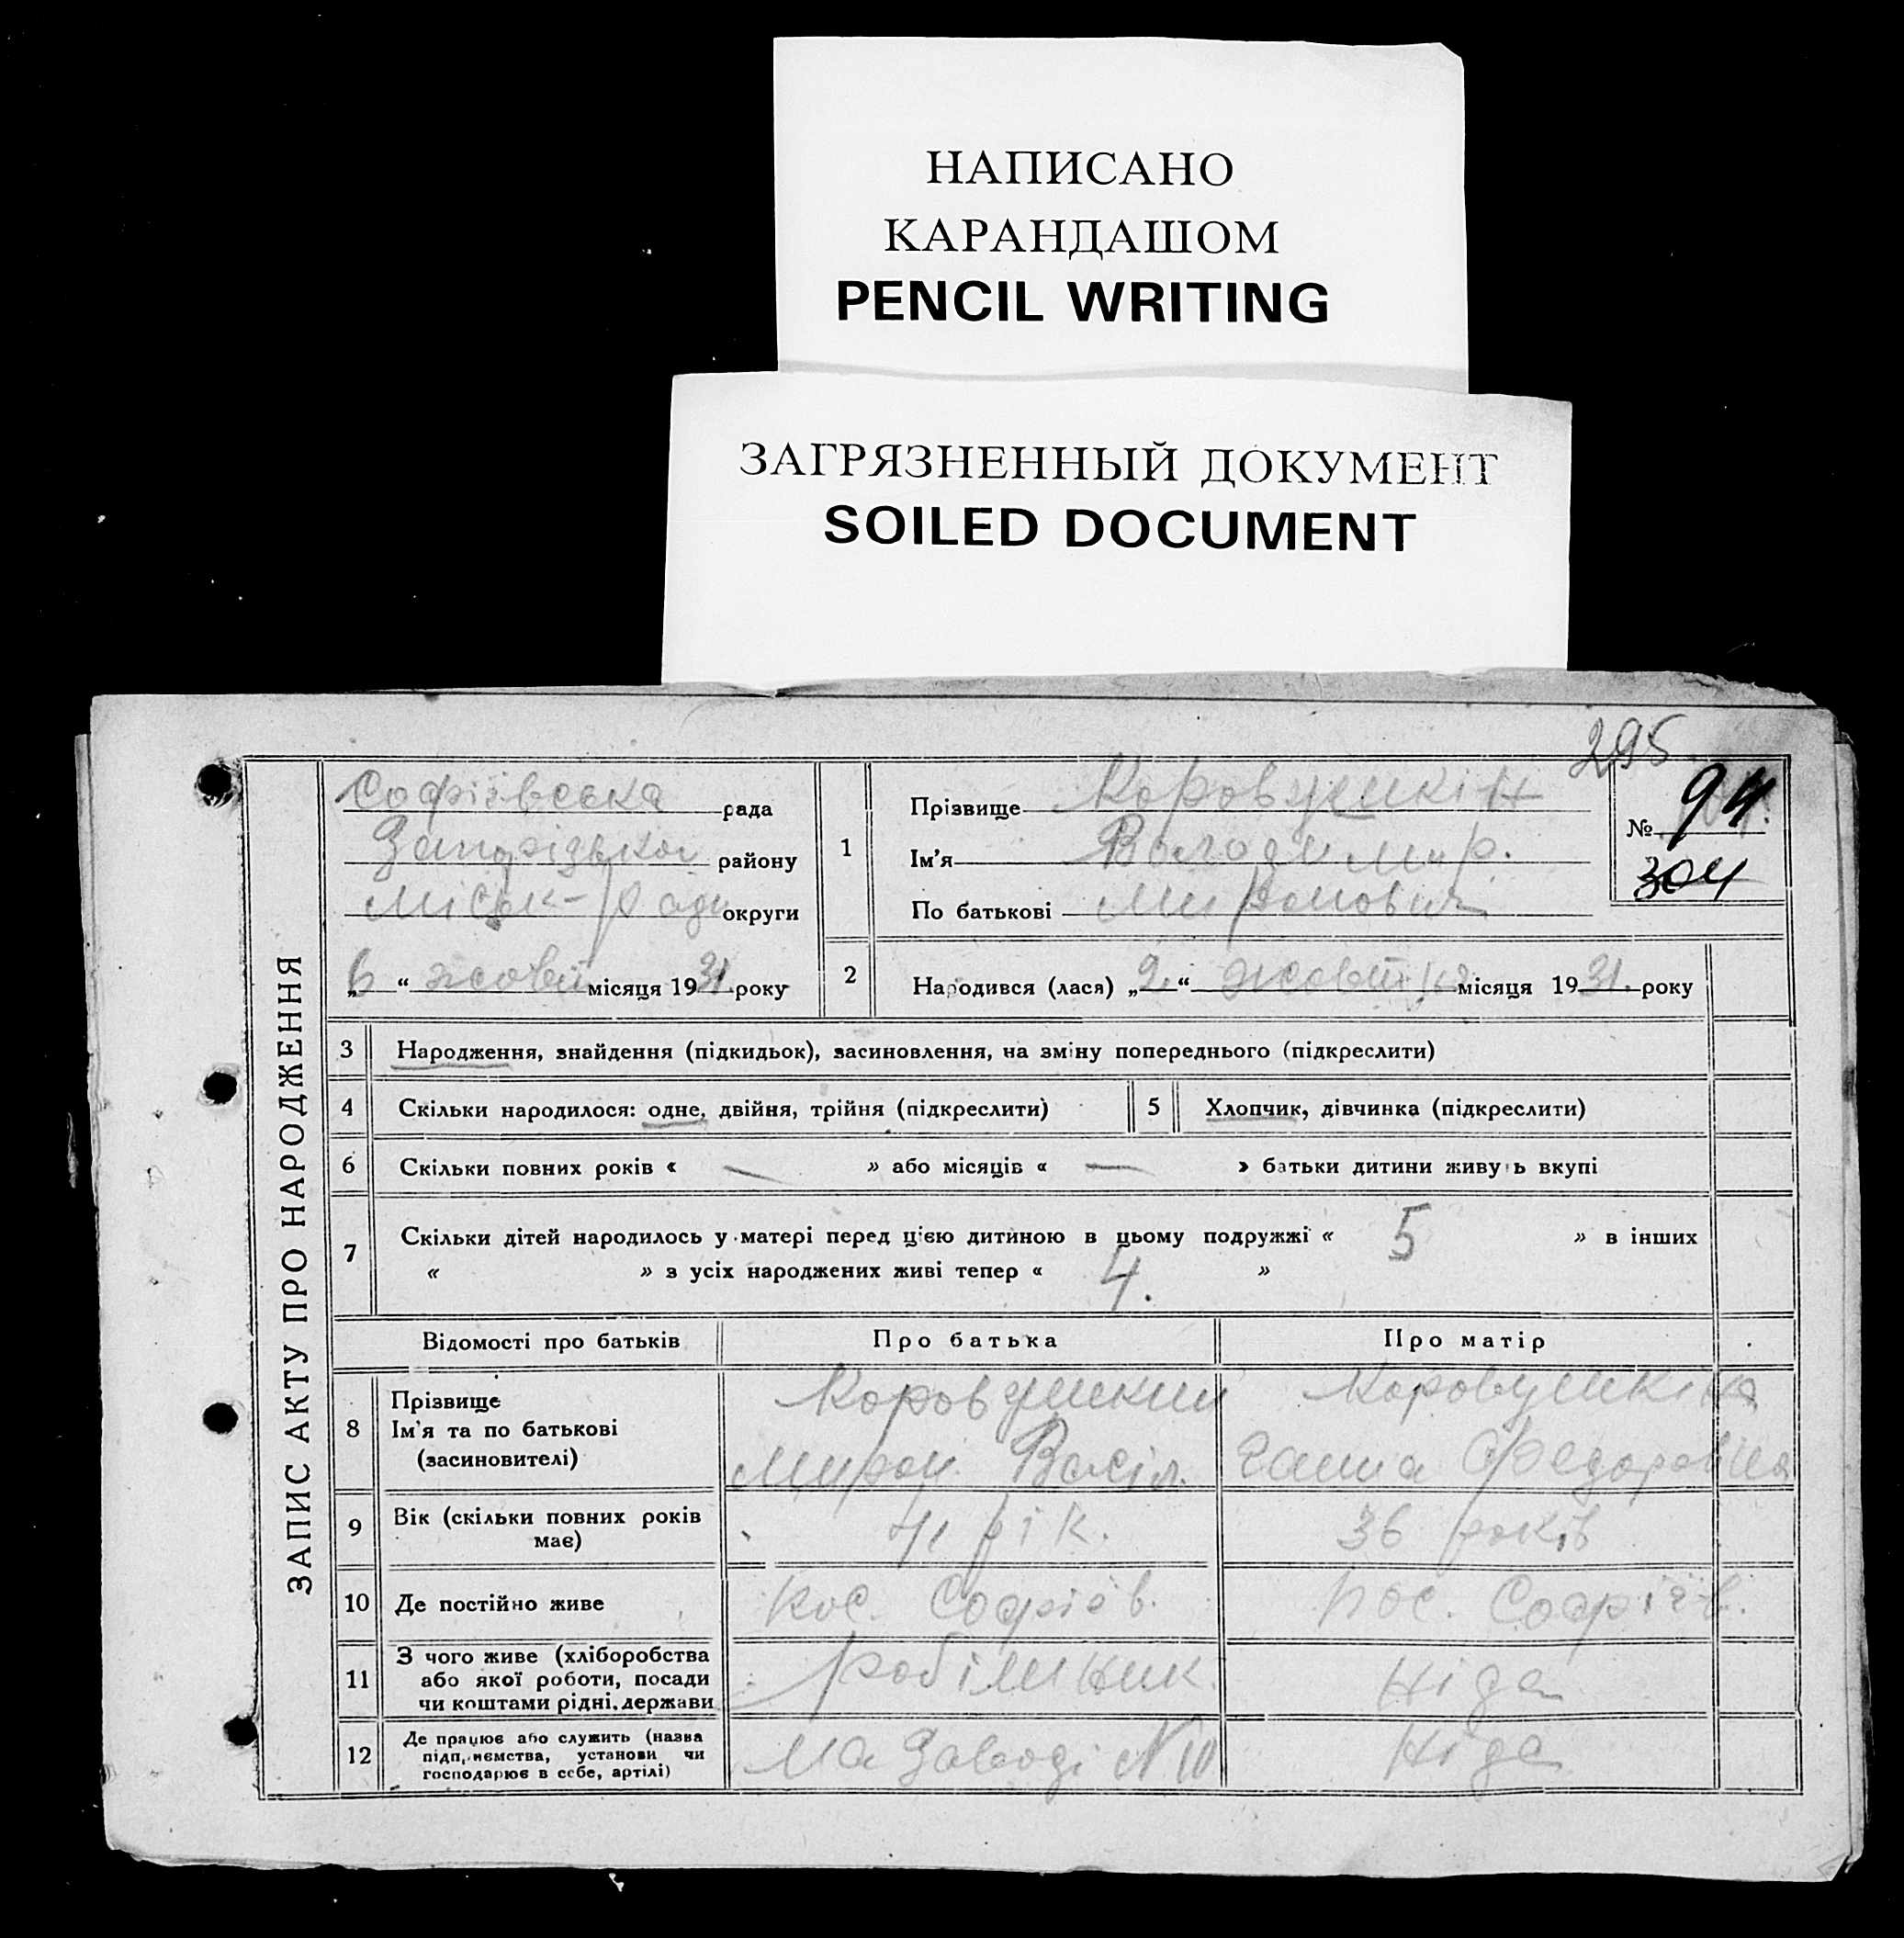 НАПИСАНО
КАРАНДАШОМ
PENCIL WRITING
ЗАГРЯЗНЕННЫЙ ДОКУМЕНТ
SOILED DOCUMENT
295
ЗАПИС АКТУ ПРО НАРОДЖЕННЯ
Софіївська рада
району
Міськ-Ради округи
„6“ жовт місяця 1931 року
1
Прізвище Коровушкін
Ім'я Володимир.
По батькові Миронович
№ 94
304
2
Народився (лася) „2“ жовтня місяця 1931. року
3 Народження, знайдення (підкидьок), засиновлення, на зміну попереднього (підкреслити)
4 Скільки народилося: одне, двійня, трійня (підкреслити) 5 Хлопчик, дівчинка (підкреслити)
6 Скільки повних років « — » або місяців « — » батьки дитини живуть вкупі
7 Скільки дітей народилось у матері перед цією дитиною в цьому подружжі « 5 » в інших
« » з усіх народжених живі тепер « 4. »
Відомості про батьків Про батька Про матір
8 Прізвище
Ім'я та по батькові
(засиновителі)
Коровушкин
Мирон Васіл.
Коровушкіна
Ганна Федоровна
9 Вік (скільки повних років
має)
41 рік.
36 років
10 Де постійно живе пос. Софіїв. пос. Софіїв.
11 З чого живе (хліборобства
або якої роботи, посади
чи коштами рідні, держави
робітник.
Ніде
12 Де працює або служить (назва
підприємства, установи чи
господарює в себе, артілі)
на Заводі N
Ніде